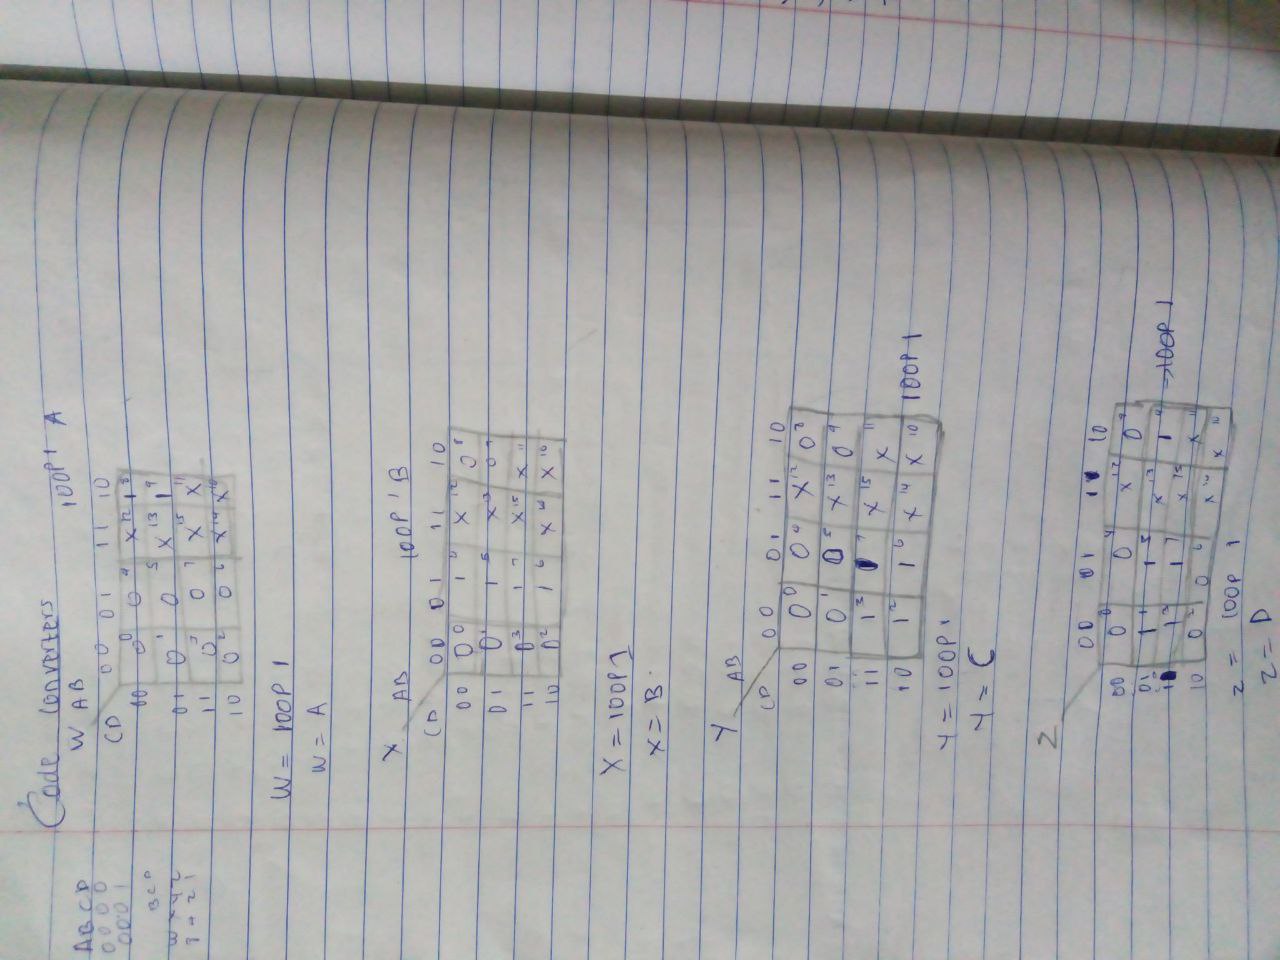 Code Converters
ABCD
0000
0001
BCD
W AB
100P1 A
CD
00 01 11 10
00 0 0 0 4 X 12 1 8
01 0 1 0 5 X 13 1 9
11 0 3 0 7 X 15 X 11
10 0 2 0 6 X 14 X 10
W = 100P 1
W = A
X AB 100P 1 B
CD 00 01 11 10
00 0 0 1 4 X 12 0 8
01 0 1 1 5 X 13 0 9
11 0 3 1 7 X 15 X 11
10 0 2 1 6 X 14 X 10
X = 100P1
X = B
Y AB
CD 00 01 11 10
00 0 0 0 4 X 12 0 8
01 0 1 0 5 X 13 0 9
11 1 3 1 7 X 15 X 11
10 1 2 1 6 X 14 X 10 100P1
Y = 100P1
Y = C
Z
00 01 11 10
00 0 0 0 4 X 12 0 8
01 1 1 1 5 X 13 1 9 →100P 1
11 1 3 1 7 X 15 X 11
10 0 2 0 6 X 14 X 10
Z = 100P 1
Z = D